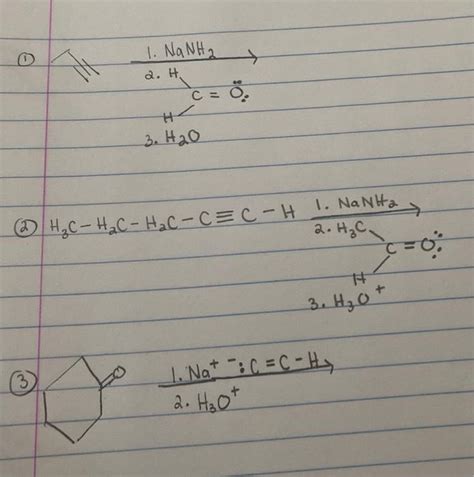 ① 1. NaNH2
2. H
C = O
H
3. H2O
② H3C - H2C - H2C - C ≡ C - H 1. NaNH2
2. H3C
C = O
H
3. H3O+
③ O 1. Na+ -:C = C - H
2. H3O+